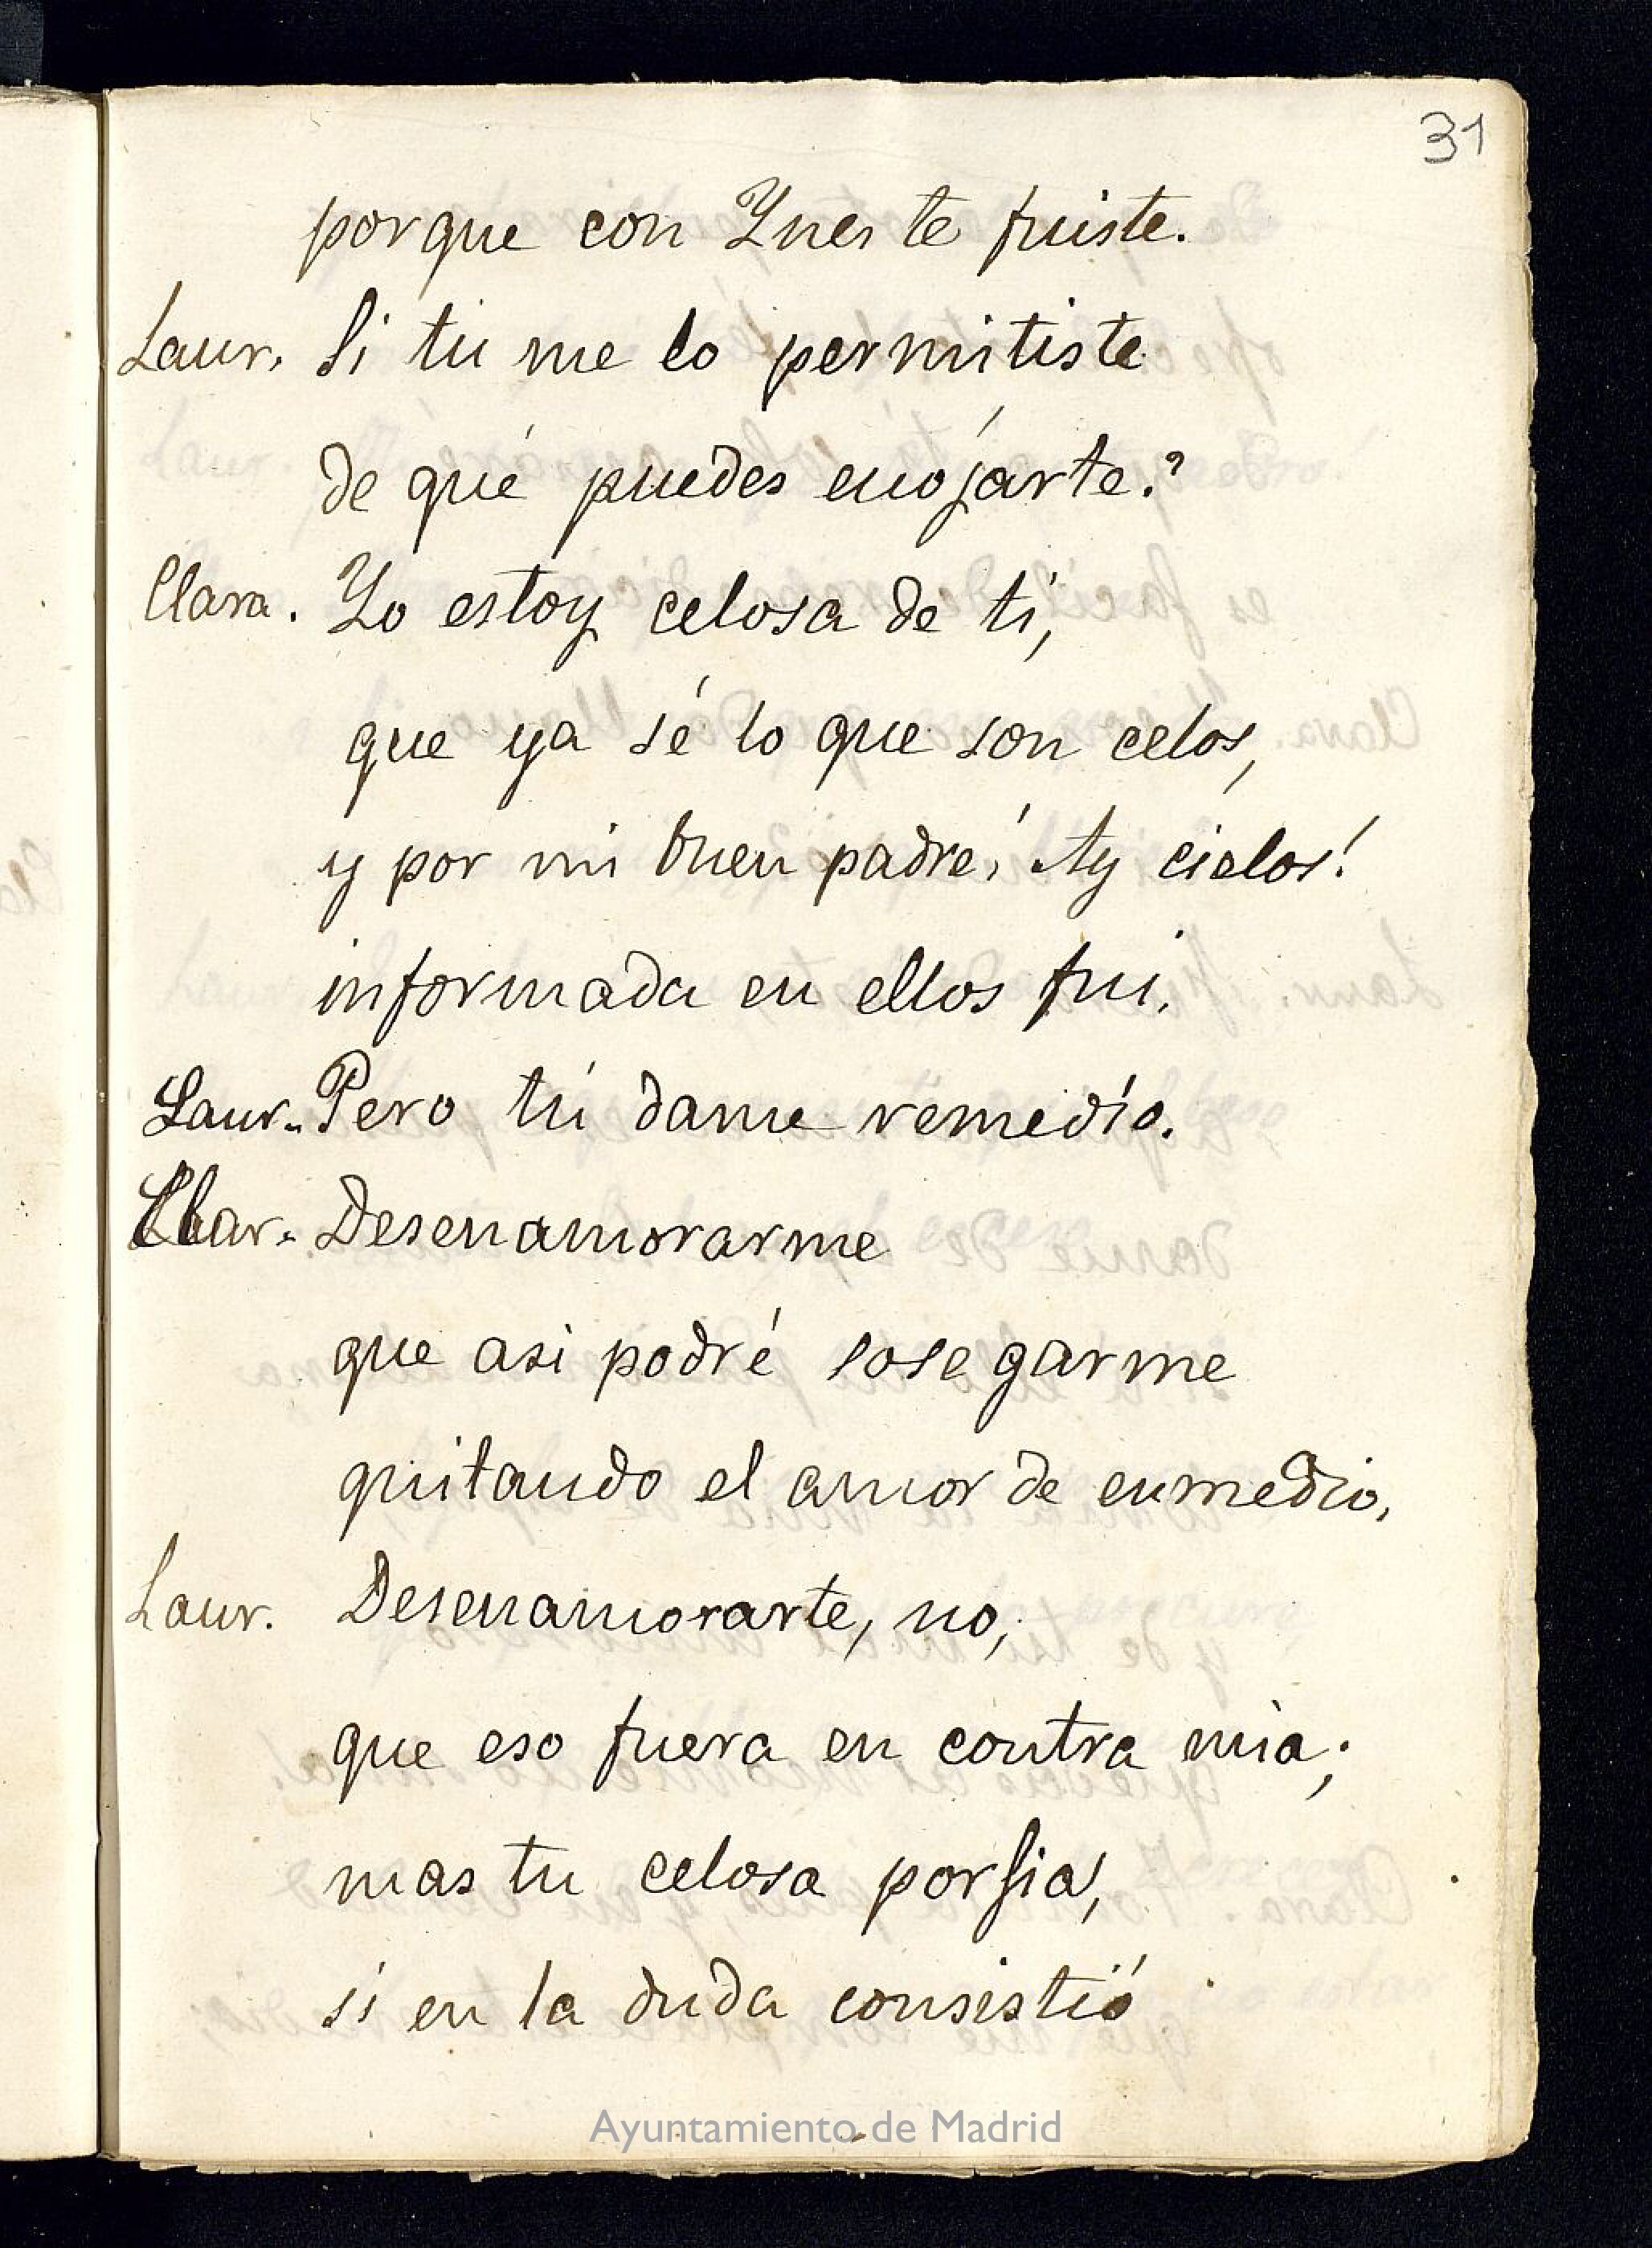 31
porque con Ynes te fuiste.
Laur. Si tu me lo permitiste
de qué puedes enojárte?
Clara. Yo estoy celosa de ti,
que ya sé lo que son celos,
y por mi buen padre, Ay cielos!
informada en ellos fui.
Laur. Pero tú dame remedio.
Clar. Desenamorarme
que asi podré sosegarme
quitando el amor de enmedio,
Laur. Desenamorarte, no,
que eso fuera en contra mia;
mas tu celosa porfia,
si en la duda consistió
Ayuntamiento de Madrid